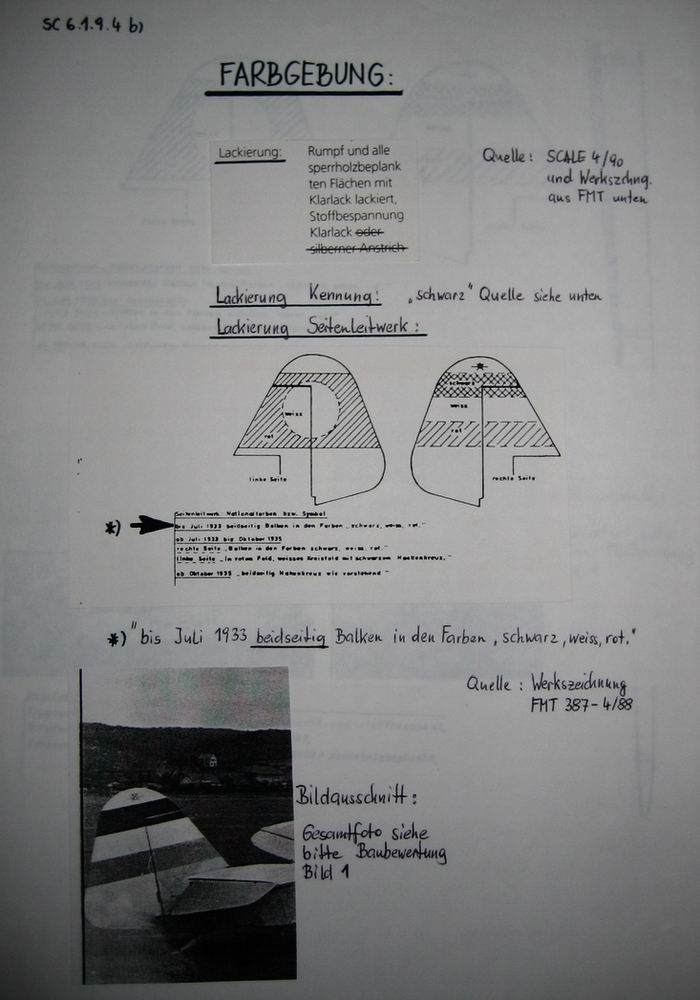 SC 6.1.9.4 b)
FARBGEBUNG:
Lackierung:
Rumpf und alle
sperrholzbeplank
ten Flächen mit
Klarlack lackiert,
Stoffbespannung
Klarlack oder
silberner Anstrich
Quelle: SCALE 4/90
und Werkszchng.
aus FMT unten
Lackierung Kennung: „schwarz" Quelle siehe unten
Lackierung Seitenleitwerk:
schwarz
weiss
weiss
rot
rot
linke Seite
rechte Seite
Seitenleitwerk: Nationalfarben bzw. Symbol
*) bis Juli 1933 beidseitig Balken in den Farben „schwarz, weiss, rot."
ab Juli 1933 bis Oktober 1935
rechte Seite „Balken in den Farben schwarz, weiss, rot."
linke Seite „In rotem Feld, weisses Kreisfeld mit schwarzem Hackenkreuz."
ab Oktober 1935 „beidseitig Hakenkreuz wie vorstehend"
*) "bis Juli 1933 beidseitig Balken in den Farben, schwarz, weiss, rot."
Quelle: Werkszeichnung
FMT 387-4/88
Bildausschnitt:
Gesamtfoto siehe
bitte Baubewertung
Bild 1